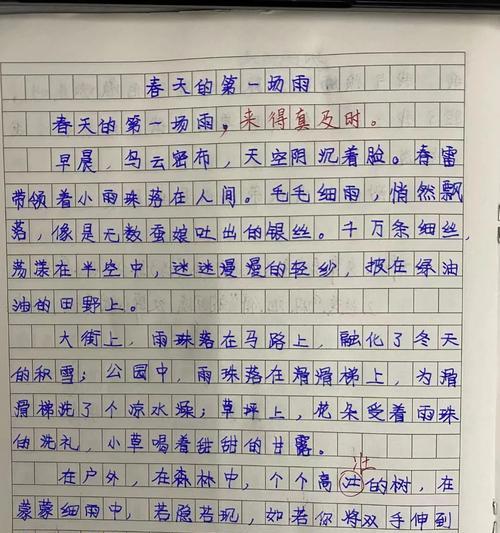 春天的第一场雨
春天的第一场雨，来得真及时。
早晨，乌云密布，天空阴沉着脸。春雷
带领着小雨珠落在人间。毛毛细雨，悄然飘
落，像是无数蚕娘吐出的银丝。千万条细丝，
荡漾在半空中，迷迷漫漫的轻纱，披在绿油
油的田野上。
大街上，雨珠落在马路上，融化了冬天
的积雪；公园中，雨珠落在滑滑梯上，为滑
滑梯洗了个凉水澡；草坪上，花朵受着雨珠
的洗礼，小草喝着甜甜的甘露。
在户外，在森林中，个个高的树，在
蒙蒙细雨中，若隐若现，如若你将双手伸到